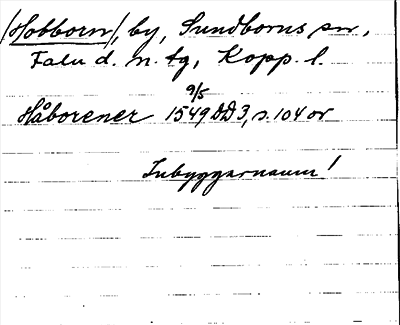 (Hobborn), by, Sundborns sn,
Falu d. n. tg, Kopp. l.
9/5
Håborener 1549 DD3, s. 104 or
Inbyggarnamn!